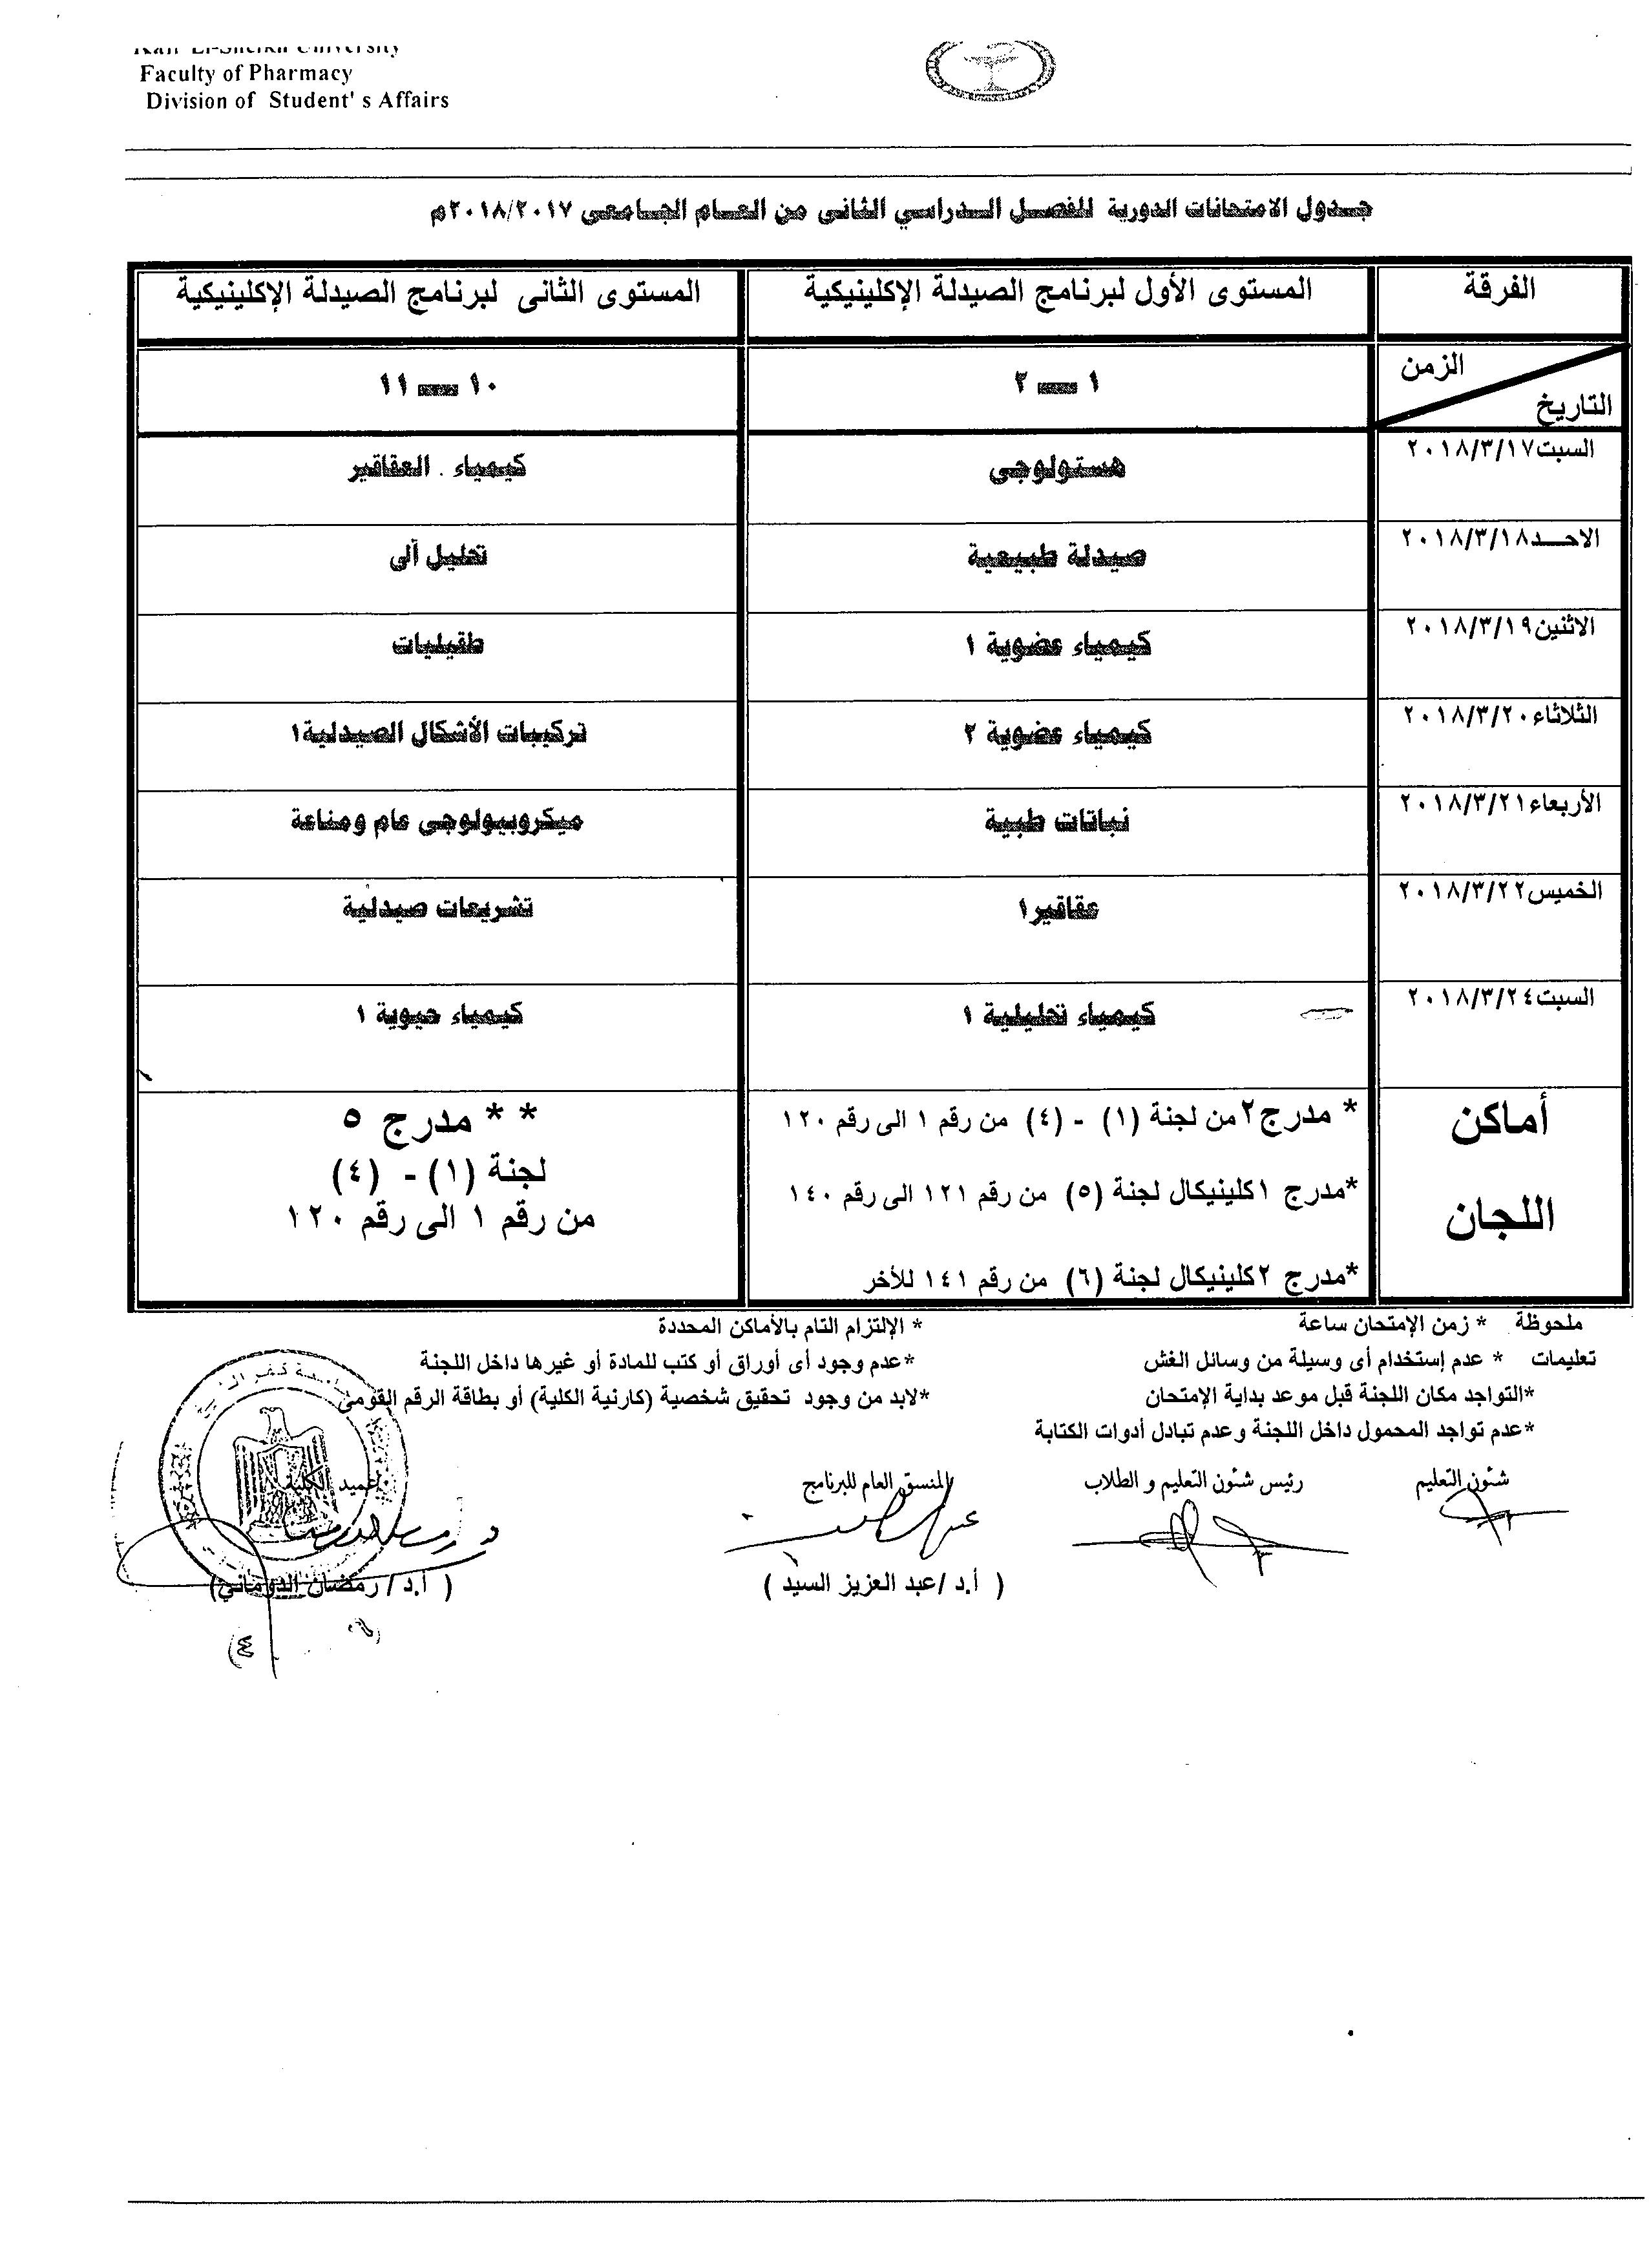 Kafr El-Sheikh University
Faculty of Pharmacy
Division of Student' s Affairs
جدول الامتحانات الدورية للفصل الدراسي الثانى من العام الجامعى ٢٠١٨/٢٠١٧م
الفرقة المستوى الأول لبرنامج الصيدلة الإكلينيكية المستوى الثانى لبرنامج الصيدلة الإكلينيكية
الزمن
التاريخ
١ ــ ٢ ١٠ ــ ١١
السبت٢٠١٨/٣/١٧ هستولوجى كيمياء . العقاقير
الاحــد٢٠١٨/٣/١٨ صيدلة طبيعية تحليل آلى
الاثنين٢٠١٨/٣/١٩ كيمياء عضوية ١ طفيليات
الثلاثاء٢٠١٨/٣/٢٠ كيمياء عضوية ٢ تركيبات الأشكال الصيدلية١
الأربعاء٢٠١٨/٣/٢١ نباتات طبية ميكروبيولوجى عام ومناعة
الخميس٢٠١٨/٣/٢٢ عقاقير١ تشريعات صيدلية
السبت٢٠١٨/٣/٢٤ كيمياء تحليلية ١ كيمياء حيوية ١
أماكن
اللجان
* مدرج٢ من لجنة (١) - (٤) من رقم ١ الى رقم ١٢٠
*مدرج ١كلينيكال لجنة (٥) من رقم ١٢١ الى رقم ١٤٠
*مدرج ٢كلينيكال لجنة (٦) من رقم ١٤١ للأخر
* * مدرج ٥
لجنة (١) - (٤)
من رقم ١ الى رقم ١٢٠
ملحوظة * زمن الإمتحان ساعة * الإلتزام التام بالأماكن المحددة
تعليمات * عدم إستخدام أى وسيلة من وسائل الغش *عدم وجود أى أوراق أو كتب للمادة أو غيرها داخل اللجنة
*التواجد مكان اللجنة قبل موعد بداية الإمتحان *لابد من وجود تحقيق شخصية (كارنية الكلية) أو بطاقة الرقم القومى
*عدم تواجد المحمول داخل اللجنة وعدم تبادل أدوات الكتابة
شئون التعليم رئيس شئون التعليم و الطلاب المنسق العام للبرنامج عميد الكلية
( أ.د /عبد العزيز السيد ) ( أ.د / رمضان الدومانى)